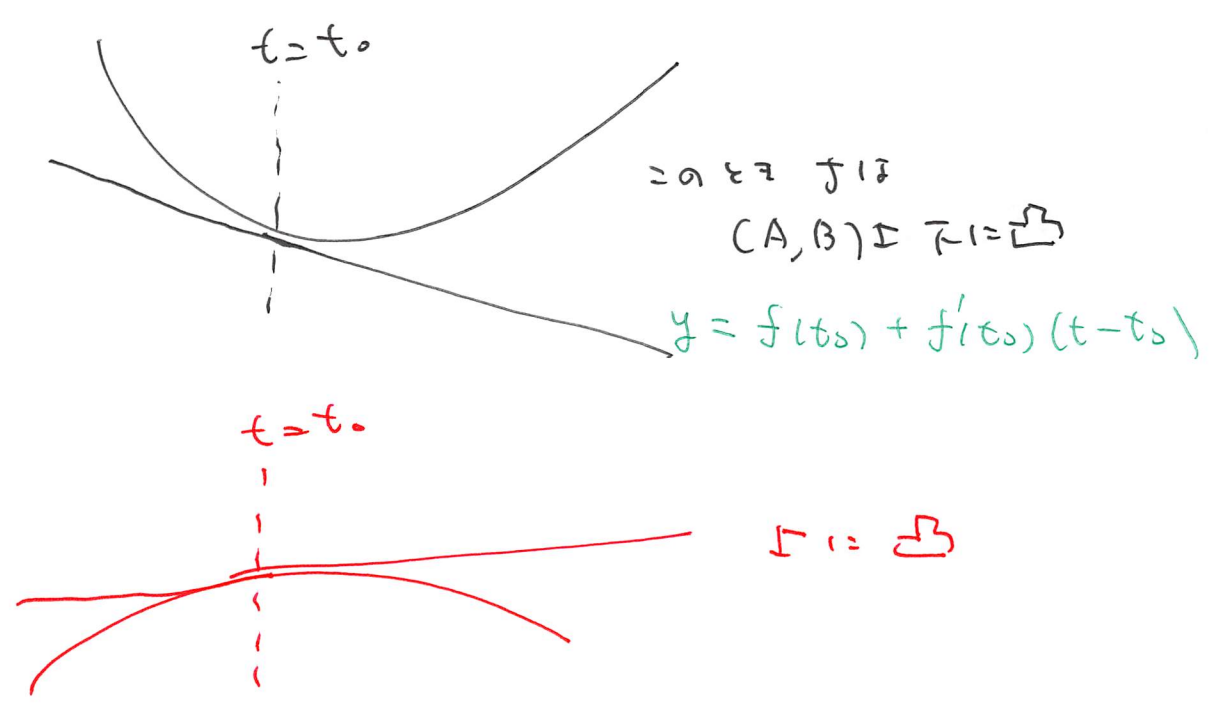 t=t₀
このとき fは
(A,B)上 下に凸
y = f(t₀) + f'(t₀)(t-t₀)
t=t₀
上に 凸